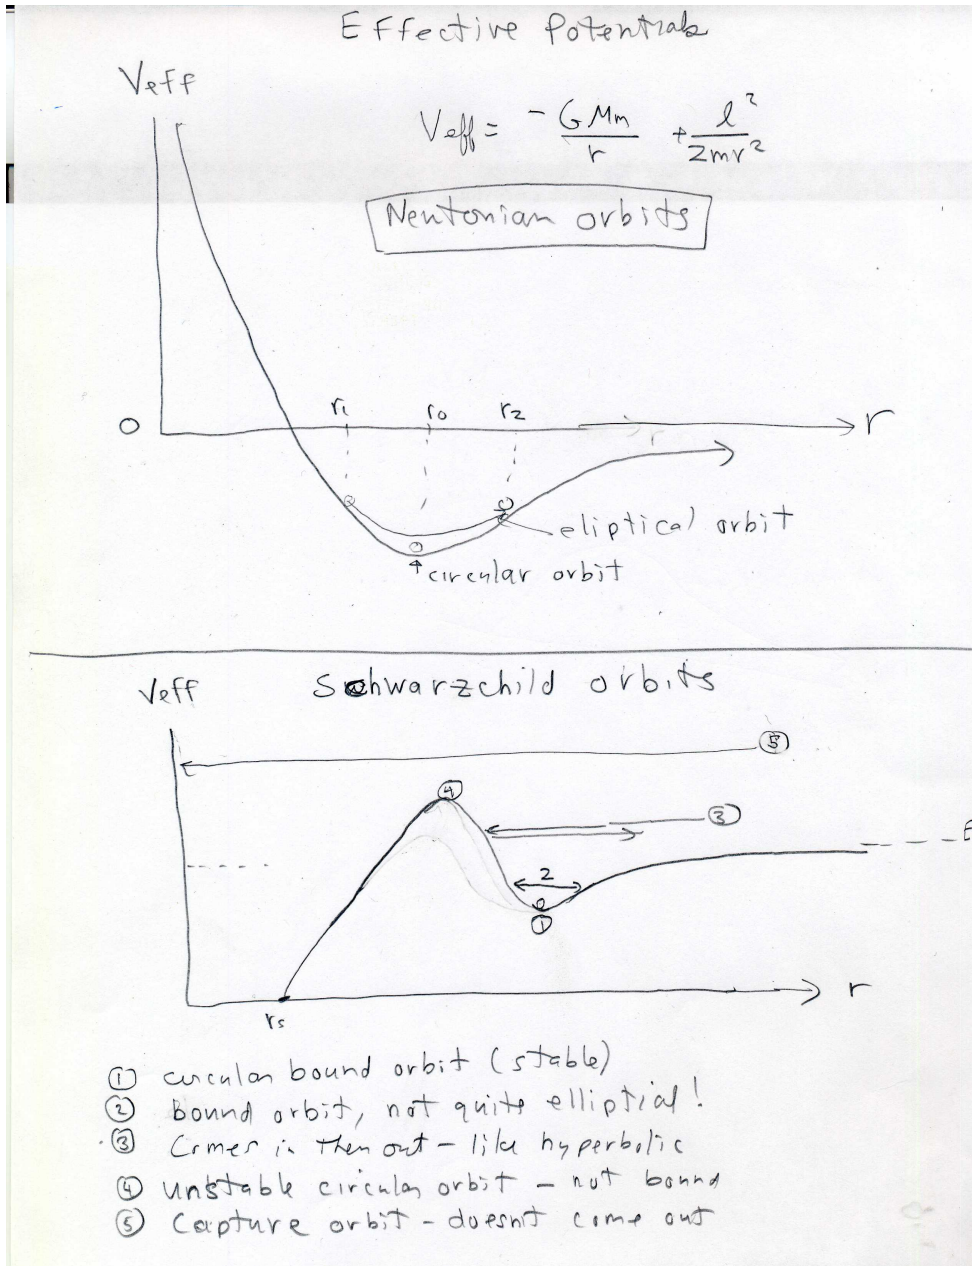 Effective Potentials
Veff
Veff = -GMm/r + l²/2mr²
Newtonian orbits
r1 r0 r2
0 r
eliptical orbit
circular orbit
Veff Schwarzchild orbits
5
4
3
E
2
1
r
rs
① circular bound orbit (stable)
② Bound orbit, not quite elliptial!
③ Comes in then out - like hyperbolic
④ unstable circular orbit - not bound
⑤ Capture orbit - doesn't come out